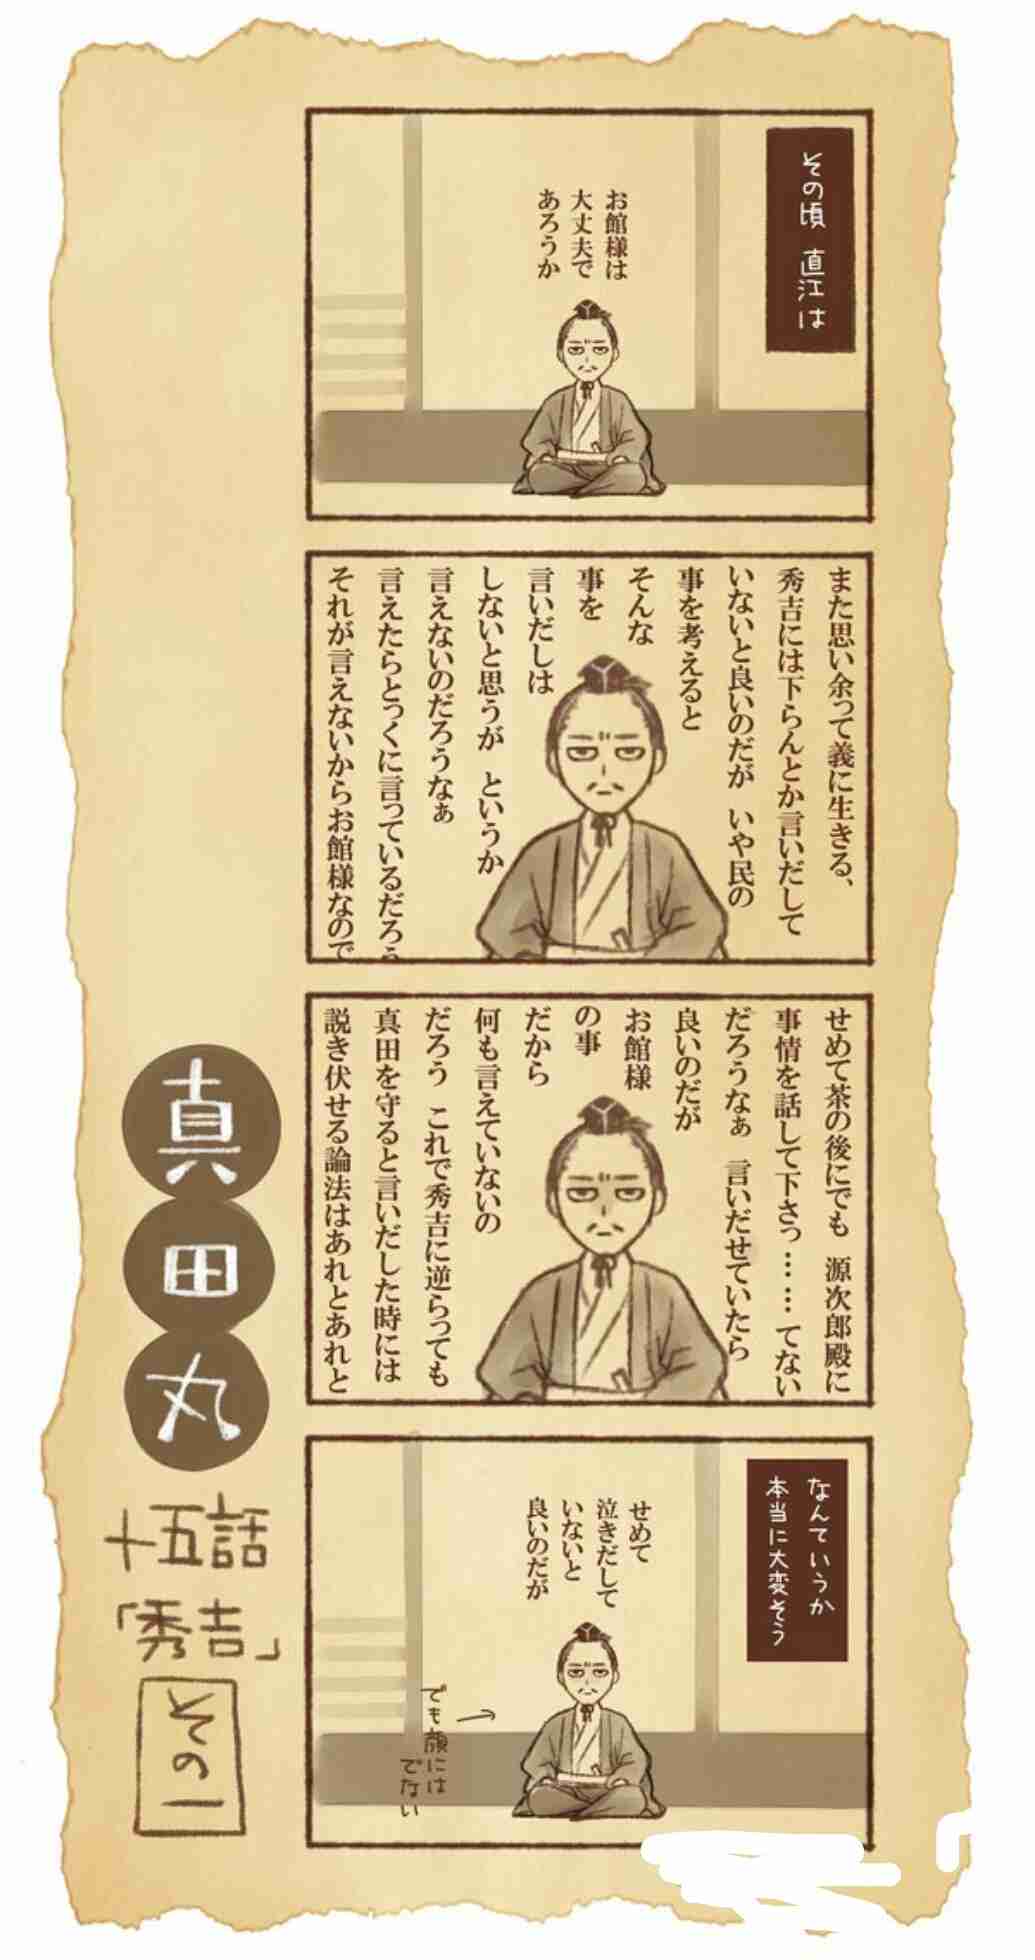 その頃 直江は
お館様は
大丈夫で
あろうか
また思い余って義に生きる、
秀吉には下らんとか言いだして
いないと良いのだが いや民の
事を考えると
そんな
事を
言いだしは
しないと思うが というか
言えないのだろうなぁ
言えたらとっくに言っているだろう
それが言えないからお館様なので
せめて茶の後にでも 源次郎殿に
事情を話して下さっ……てない
だろうなぁ 言いだせていたら
良いのだが
お館様
の事
だから
何も言えていないの
だろう これで秀吉に逆らっても
真田を守ると言いだした時には
説き伏せる論法はあれとあれと
なんていうか
本当に大変そう
せめて
泣きだして
いないと
良いのだが
でも顔には
でない
真田丸
十五話
「秀吉」
その一